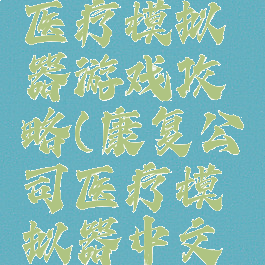 医疗模拟
器游戏攻
略(康复公
司医疗模
拟器中文